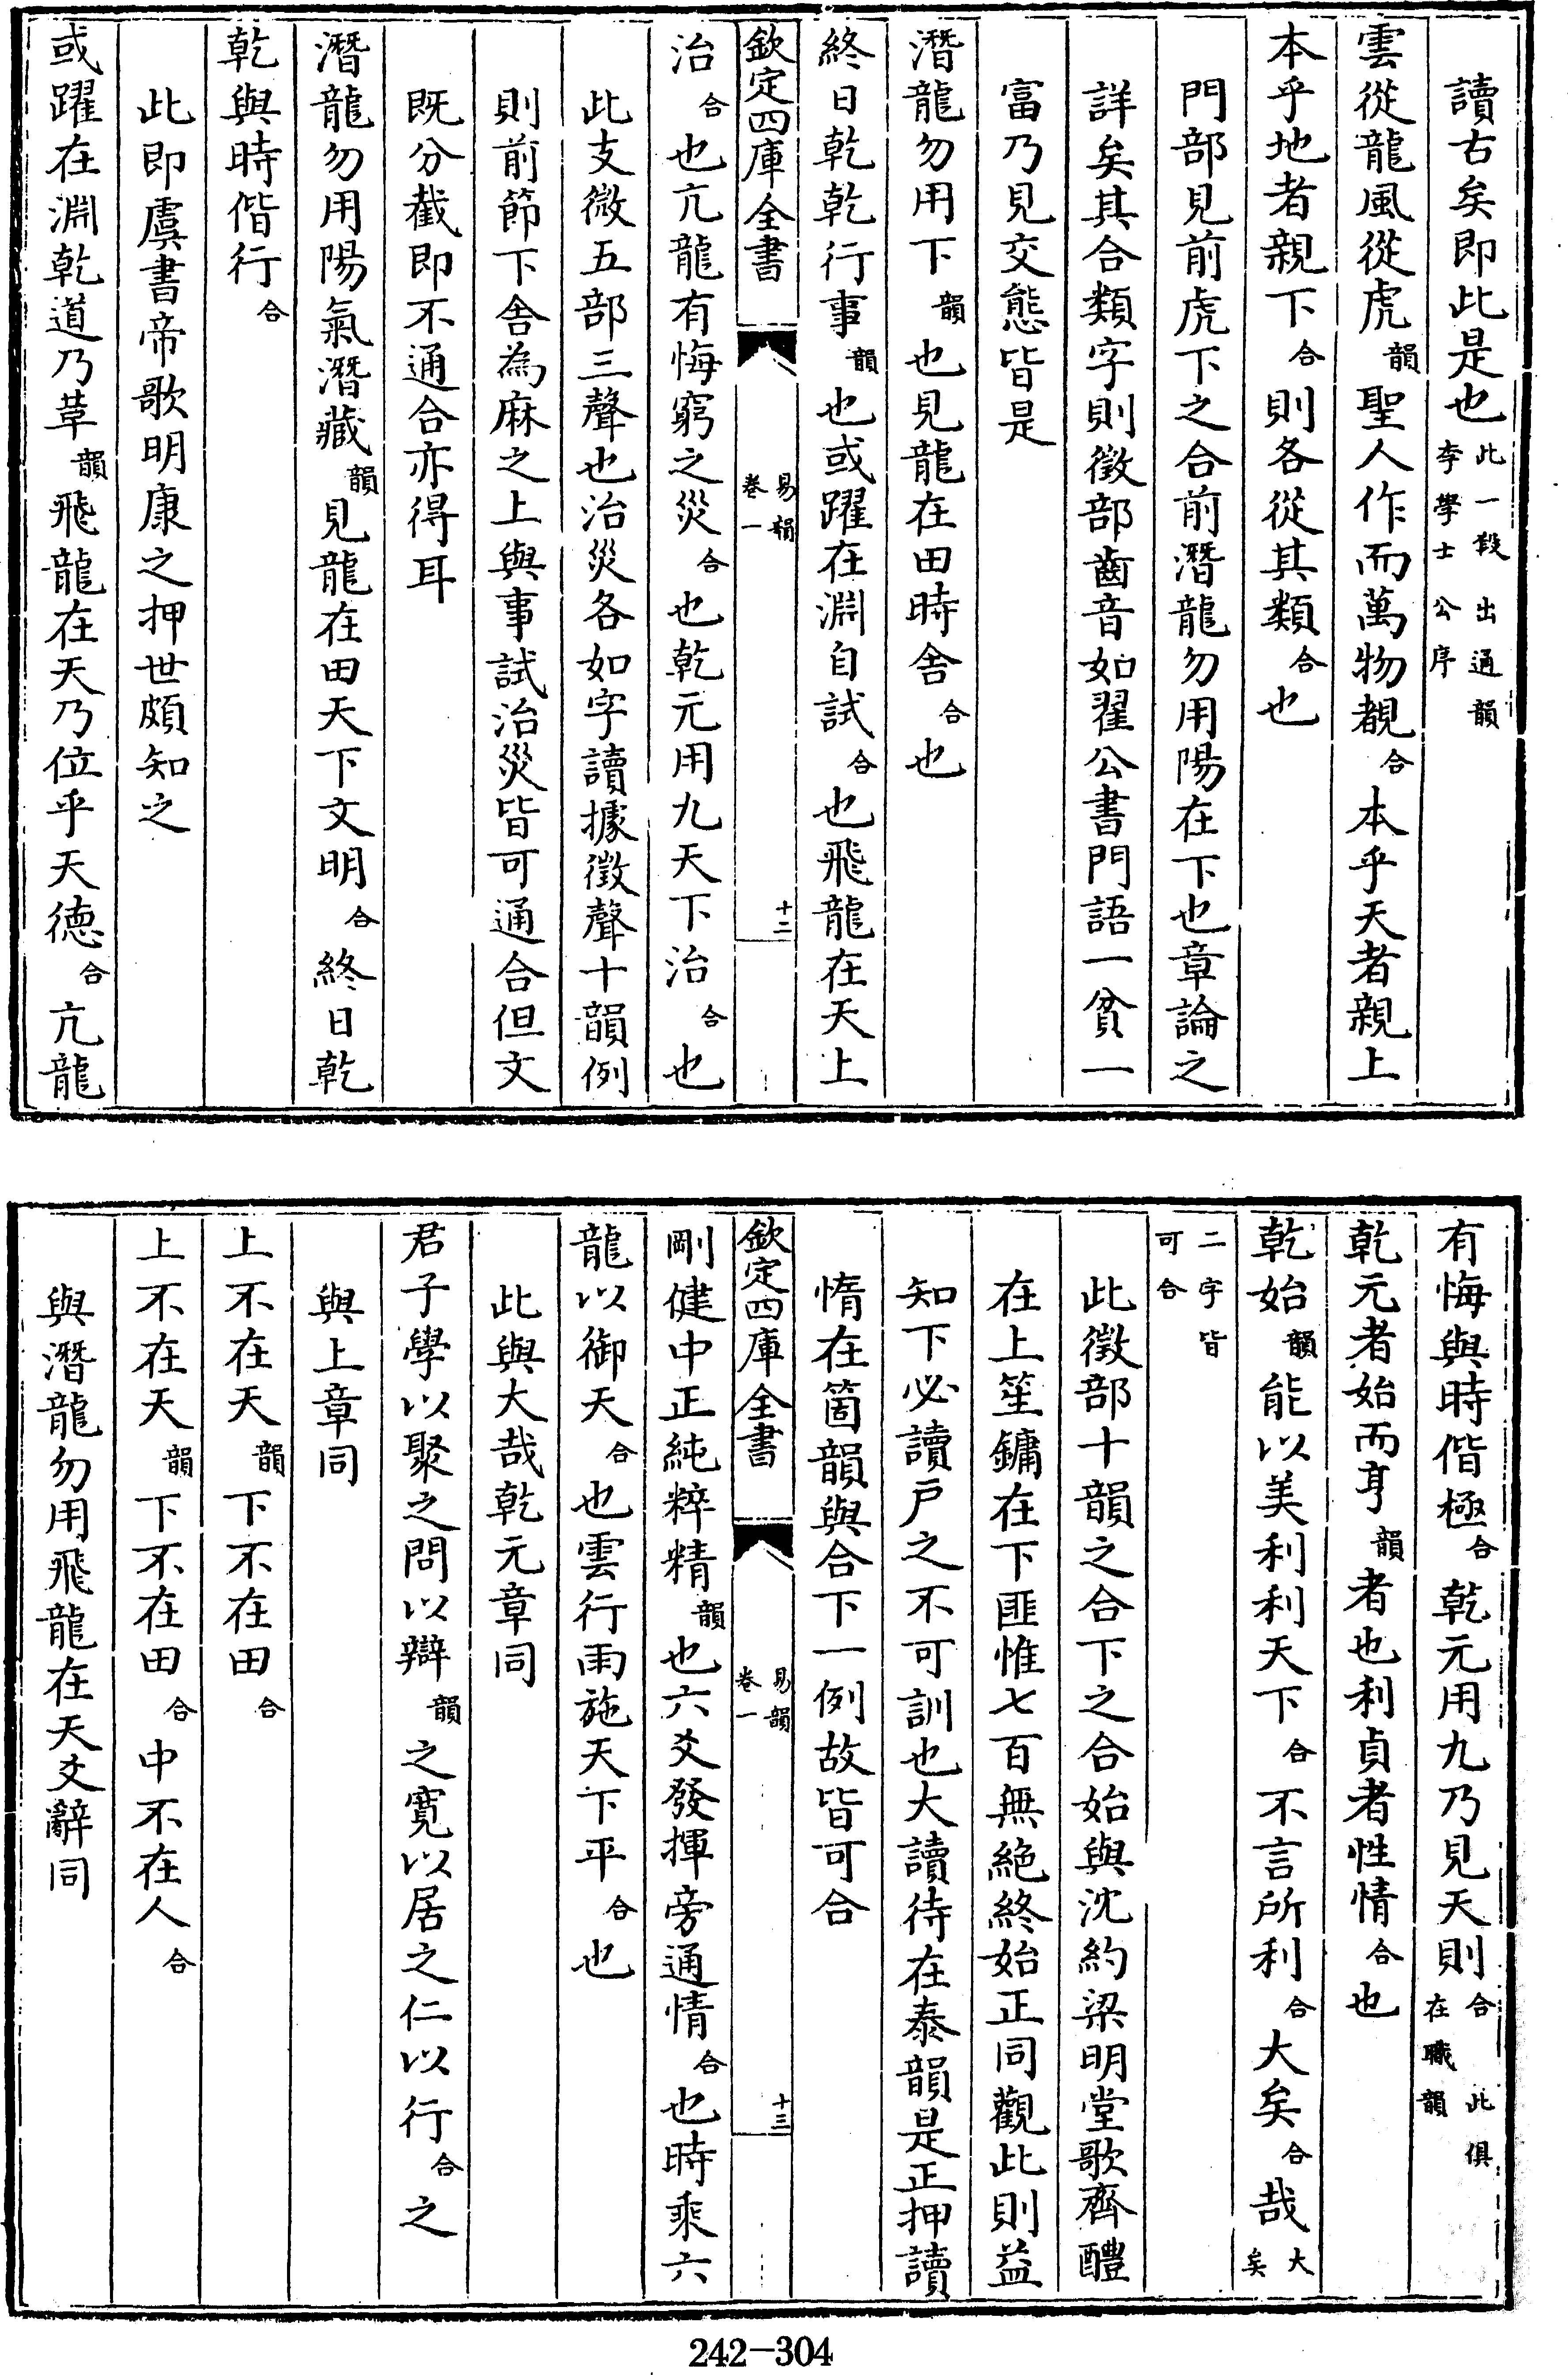 讀古矣即此是也此一段出通韻李學士公序
雲從龍風從虎韻聖人作而萬物覩合本乎天者親上
本乎地者親下合則各從其類合也
門部見前虎下之合前潛龍勿用陽在下也章論之
詳矣其合類字則徵部齒音如翟公書門語一貧一
富乃見交態皆是
潛龍勿用下韻也見龍在田時舍合也
終日乾乾行事韻也或躍在淵自試合也飛龍在天上
欽定四庫全書
易韻卷一
十二
治合也亢龍有悔窮之災合也乾元用九天下治合也
此支微五部三聲也治災各如字讀據徵聲十韻例
則前節下舍為麻之上與事試治災皆可通合但文
既分截即不通合亦得耳
潛龍勿用陽氣潛藏韻見龍在田天下文明合終日乾
乾與時偕行合
此即虞書帝歌明康之押世頗知之
或躍在淵乾道乃革韻飛龍在天乃位乎天德合亢龍
有悔與時偕極合乾元用九乃見天則合此俱在職韻
乾元者始而亨韻者也利貞者性情合也
乾始韻能以美利利天下合不言所利合大矣合哉大矣
二字皆可合
此徵部十韻之合下之合始與沈約梁明堂歌齊醴
在上笙鏞在下匪惟七百無絶終始正同觀此則益
知下必讀戸之不可訓也大讀待在泰韻是正押讀
惰在箇韻與合下一例故皆可合
欽定四庫全書
易韻卷一
十三
剛健中正純粹精韻也六爻發揮旁通情合也時乘六
龍以御天合也雲行雨施天下平合也
此與大哉乾元章同
君子學以聚之問以辯韻之寛以居之仁以行合之
與上章同
上不在天韻下不在田合
上不在天韻下不在田合中不在人合
與潛龍勿用飛龍在天爻辭同
242-304